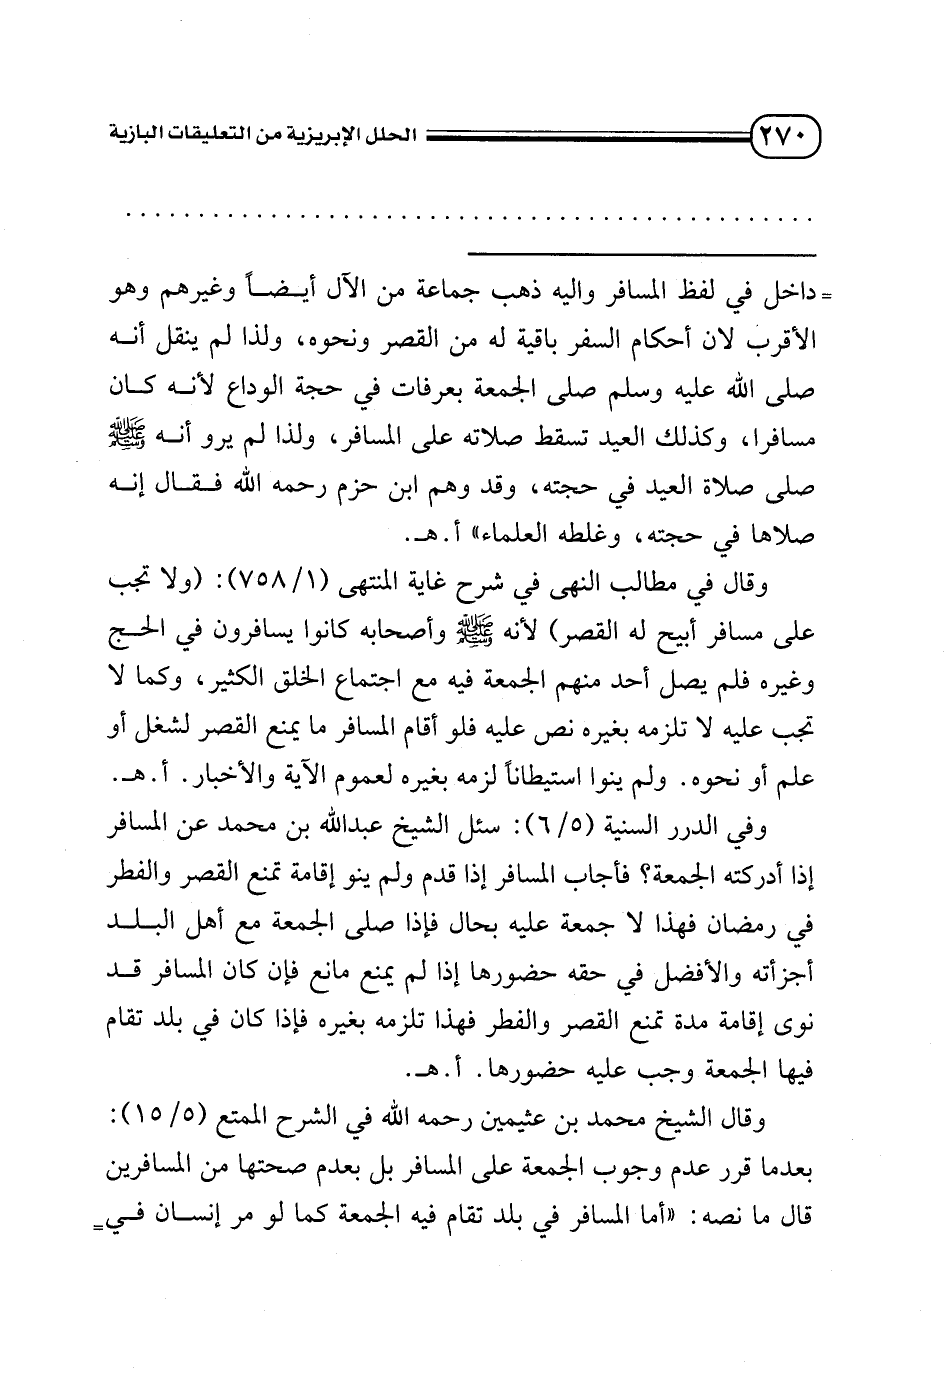 ٢٧٠ الحلل الإبريزية من التعليقات البازية
. . . . . . . . . . . . . . . . . . . . . . . . . . . . . . . . . . . . . . . . . . . . . . . .
= داخل في لفظ المسافر واليه ذهب جماعة من الآل أيضاً وغيرهم وهو
الأقرب لان أحكام السفر باقية له من القصر ونحوه، ولذا لم ينقل أنه
صلى الله عليه وسلم صلى الجمعة بعرفات في حجة الوداع لأنه كان
مسافرا، وكذلك العيد تسقط صلاته على المسافر، ولذا لم يرو أنه ﷺ
صلى صلاة العيد في حجته، وقد وهم ابن حزم رحمه الله فقال إنه
صلاها في حجته، وغلطه العلماء» أ.هـ.
وقال في مطالب النهى في شرح غاية المنتهى (٧٥٨/١): (ولا تجب
على مسافر أبيح له القصر) لأنه ﷺ وأصحابه كانوا يسافرون في الحج
وغيره فلم يصل أحد منهم الجمعة فيه مع اجتماع الخلق الكثير، وكما لا
تجب عليه لا تلزمه بغيره نص عليه فلو أقام المسافر ما يمنع القصر لشغل أو
علم أو نحوه. ولم ينوا استيطاناً لزمه بغيره لعموم الآية والأخبار. أ.هـ.
وفي الدرر السنية (٦/٥): سئل الشيخ عبدالله بن محمد عن المسافر
إذا أدركته الجمعة؟ فأجاب المسافر إذا قدم ولم ينو إقامة تمنع القصر والفطر
في رمضان فهذا لا جمعة عليه بحال فإذا صلى الجمعة مع أهل البلد
أجزأته والأفضل في حقه حضورها إذا لم يمنع مانع فإن كان المسافر قد
نوى إقامة مدة تمنع القصر والفطر فهذا تلزمه بغيره فإذا كان في بلد تقام
فيها الجمعة وجب عليه حضورها. أ.هـ.
وقال الشيخ محمد بن عثيمين رحمه الله في الشرح الممتع (١٥/٥):
بعدما قرر عدم وجوب الجمعة على المسافر بل بعدم صحتها من المسافرين
قال ما نصه: «أما المسافر في بلد تقام فيه الجمعة كما لو مر إنسان في =